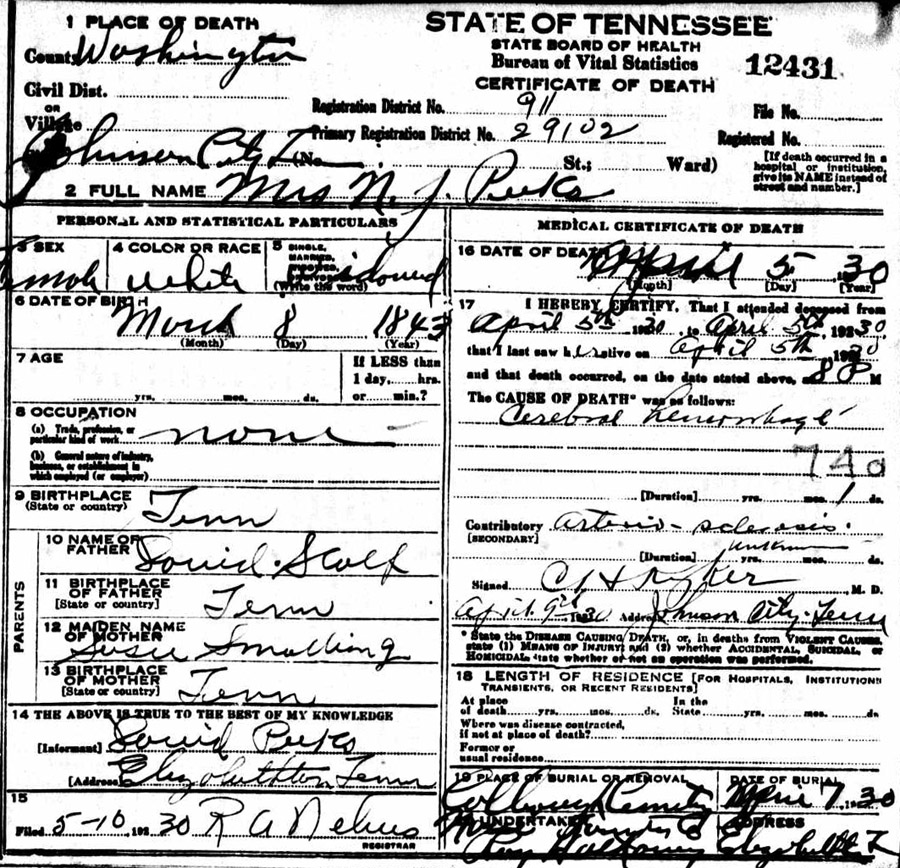 STATE OF TENNESSEE
STATE BOARD OF HEALTH
Bureau of Vital Statistics
CERTIFICATE OF DEATH
12431
1 PLACE OF DEATH
County Washington
Civil Dist.
OR
Village
Johnson City (No.
St.; Ward)
Registration District No. 911
Primary Registration District No. 29102
File No.
Registered No.
[If death occurred in a
hospital or institution,
give its NAME instead of
street and number.]
2 FULL NAME Mrs N. J. Peeks
PERSONAL AND STATISTICAL PARTICULARS
3 SEX
4 COLOR OR RACE White
5 SINGLE,
MARRIED,
(Write the word) Widowed
6 DATE OF BIRTH
March 8 1843
(Month) (Day) (Year)
7 AGE
yrs. mos. ds.
If LESS than
1 day, hrs.
or min.?
8 OCCUPATION
(a) Trade, profession, or
particular kind of work none
(b) General nature of industry,
business, or establishment in
which employed (or employer)
9 BIRTHPLACE
(State or country) Tenn
PARENTS
10 NAME OF
FATHER David Scalf
11 BIRTHPLACE
OF FATHER
[State or country] Tenn
12 MAIDEN NAME
OF MOTHER
Susie Smalling
13 BIRTHPLACE
OF MOTHER
[State or country] Tenn
14 THE ABOVE IS TRUE TO THE BEST OF MY KNOWLEDGE
[Informant] David Peeks
[Address] Elizabethton Tenn
15
Filed 5-10 192 30 R A
REGISTRAR
MEDICAL CERTIFICATE OF DEATH
16 DATE OF DEATH April 5 30
[Month] [Day] [Year]
17 I HEREBY CERTIFY, That I attended deceased from
April 5th 1930, to April 5th, 192 30
that I last saw her alive on April 5th, 30
and that death occurred, on the date stated above, at 8 M
The CAUSE OF DEATH* was as follows:
Cerebral hemorrhage
74a
[Duration] yrs. mos. 1 ds.
Contributory Arterio-sclerosis.
[SECONDARY]
unknown
[Duration] yrs. mos. ds.
Signed M. D.
April 9th 1930 Address Johnson City Tenn
* State the DISEASE CAUSING DEATH, or, in deaths from VIOLENT CAUSES,
state (1) MEANS OF INJURY; and (2) whether ACCIDENTAL, SUICIDAL, or
HOMICIDAL, state whether or not an operation was performed.
18 LENGTH OF RESIDENCE [FOR HOSPITALS, INSTITUTIONS
TRANSIENTS, OR RECENT RESIDENTS]
At place In the
of death yrs. mos. ds. State yrs. mos. ds.
Where was disease contracted,
if not at place of death?
Former or
usual residence
19 PLACE OF BURIAL OR REMOVAL
DATE OF BURIAL
April 7, 1930
UNDERTAKER
ADDRESS